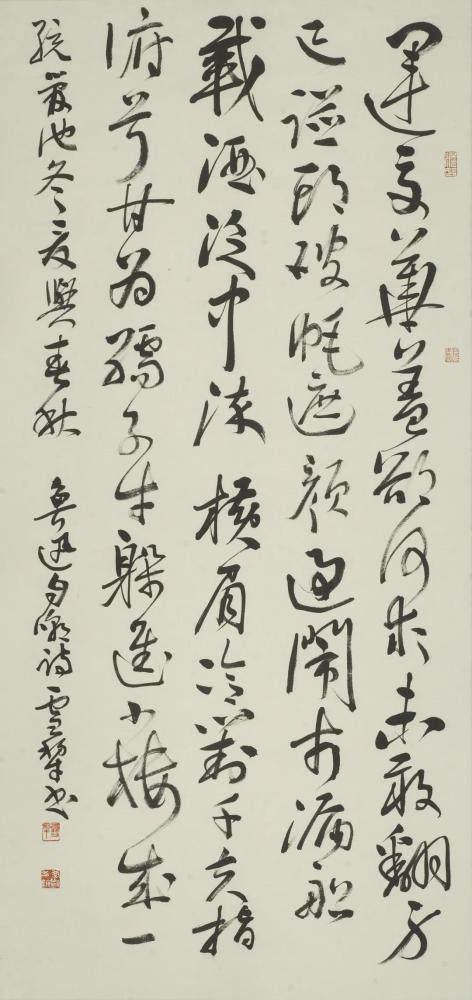 運交華蓋欲何求未敢翻身
已碰頭破帽遮顏過鬧市漏船
載酒泛中流橫眉冷對千夫指
俯首甘為孺子牛躲進小樓成一
統管他冬夏與春秋 魯迅自嘲詩 書